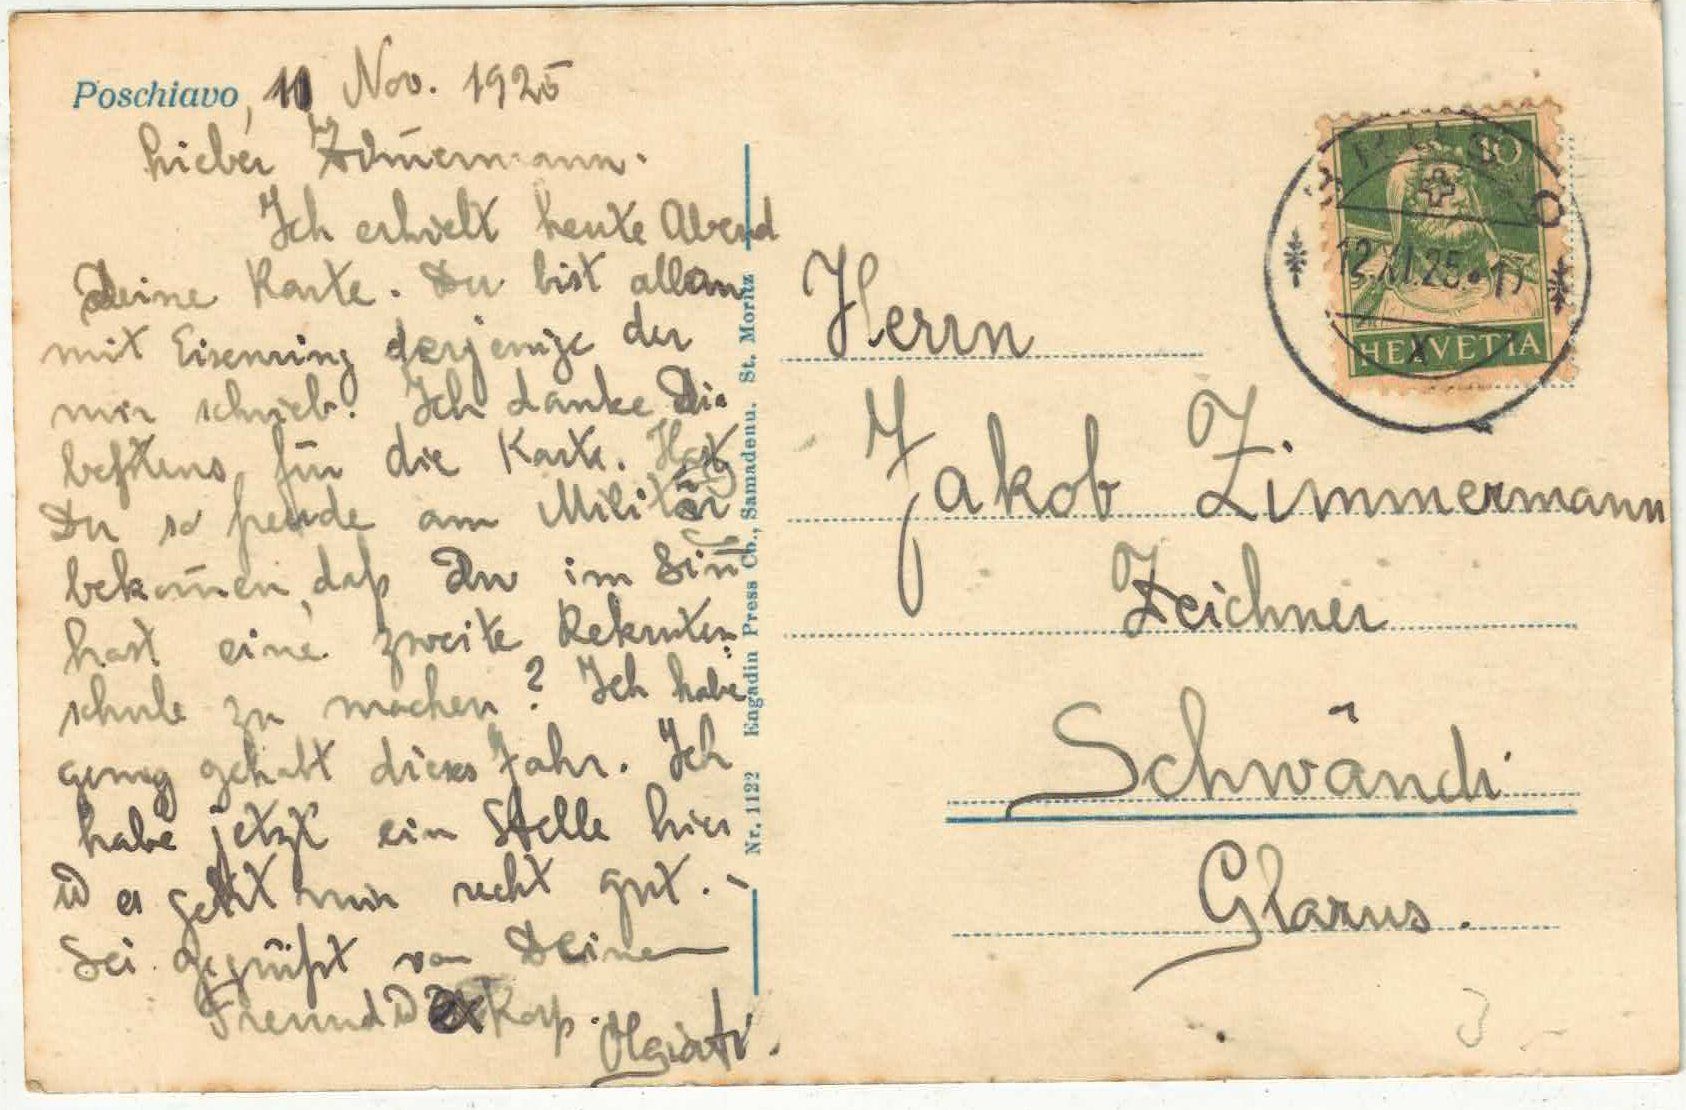 Poschiavo, 11 Nov. 1925
Lieber Zimermann.
Ich erhielt heute Abend
Deine Karte. Du bist allein
mit Eisenring derjenige der
mir schrieb. Ich danke Dir
bestens für die Karte. Hast
Du so freude am Militär
bekom̄en, daß Du im Sin̄
hast eine zweite Rekruten
schule zu machen? Ich habe
genug gehabt dieses Jahr. Ich
habe jetzt ein Stelle hier
u es geht mir recht gut. –
Sei gegrüßt von Deinem
Freund u Ex Korp.
Olgiati.
Nr. 1122 Engadin Press Co., Samadenu. St. Moritz
BRUSIO
12.XI.25.
X
10
HELVETIA
Herrn
Jakob Zimmermann
Zeichner
Schwändi
Glarus.